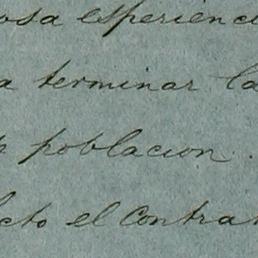 osa esperienci
a terminar la
e poblacion.
cto el contra